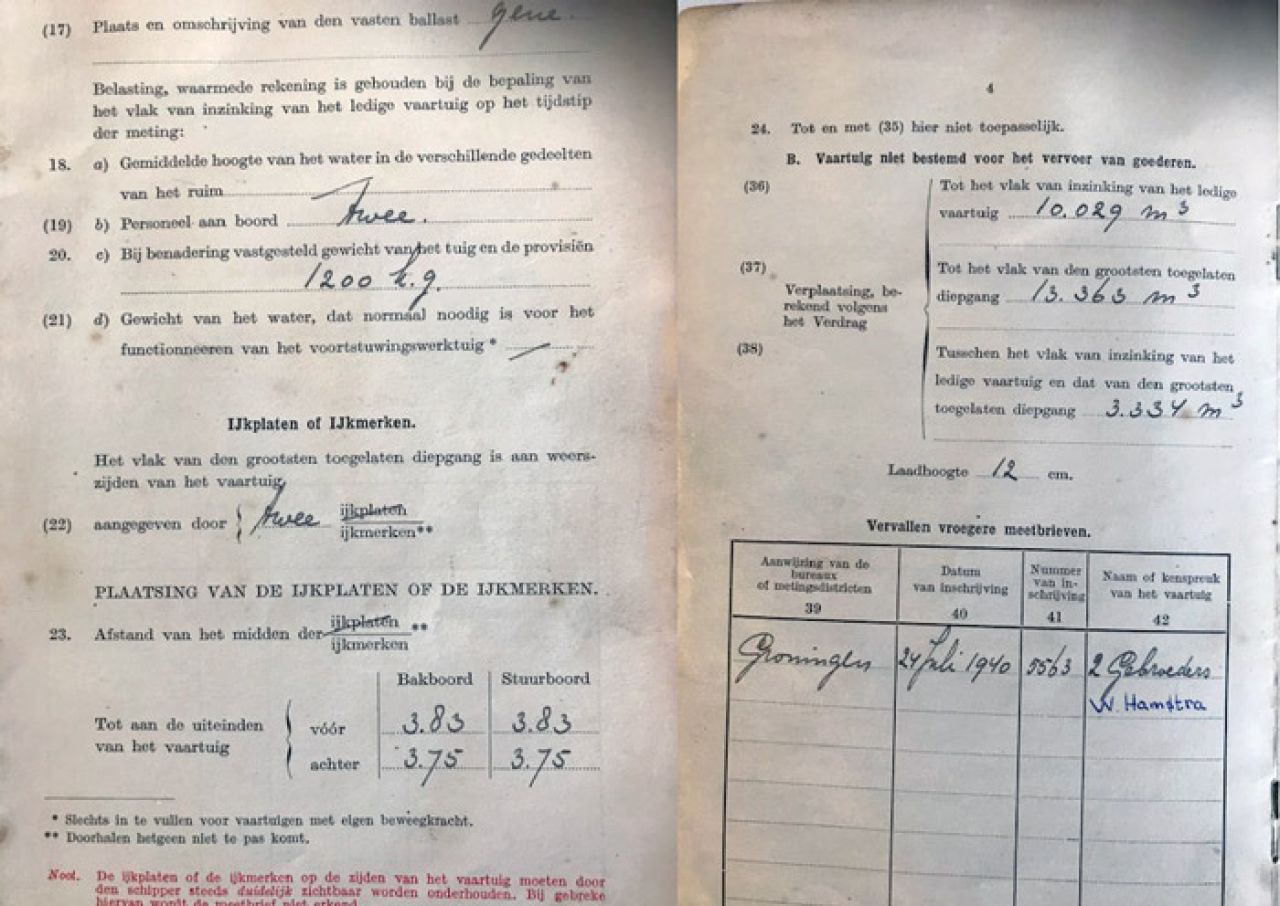 (17) Plaats en omschrijving van den vasten ballast gene.
Belasting, waarmede rekening is gehouden bij de bepaling van
het vlak van inzinking van het ledige vaartuig op het tijdstip
der meting:
18. a) Gemiddelde hoogte van het water in de verschillende gedeelten
van het ruim
(19) b) Personeel aan boord twee.
20. c) Bij benadering vastgesteld gewicht van het tuig en de provisiën
1200 k.g.
(21) d) Gewicht van het water, dat normaal noodig is voor het
functionneeren van het voortstuwingswerktuig * —
IJkplaten of IJkmerken.
Het vlak van den grootsten toegelaten diepgang is aan weers-
zijden van het vaartuig
(22) aangegeven door { twee ijkplaten
ijkmerken**
PLAATSING VAN DE IJKPLATEN OF DE IJKMERKEN.
23. Afstand van het midden der ijkplaten **
ijkmerken
Bakboord Stuurboord
Tot aan de uiteinden
van het vaartuig
vóór 3.83 3.83
achter 3.75 3.75
* Slechts in te vullen voor vaartuigen met eigen beweegkracht.
** Doorhalen hetgeen niet te pas komt.
Noot. De ijkplaten of de ijkmerken op de zijden van het vaartuig moeten door
den schipper steeds duidelijk zichtbaar worden onderhouden. Bij gebreke
hiervan wordt de meetbrief niet erkend
4
24. Tot en met (35) hier niet toepasselijk.
B. Vaartuig niet bestemd voor het vervoer van goederen.
(36) Tot het vlak van inzinking van het ledige
vaartuig 10.029 m³
(37) Tot het vlak van den grootsten toegelaten
diepgang 13.363 m³
Verplaatsing, be-
rekend volgens
het Verdrag
(38) Tusschen het vlak van inzinking van het
ledige vaartuig en dat van den grootsten
toegelaten diepgang 3.334 m³
Laadhoogte 12 cm.
Vervallen vroegere meetbrieven.
Aanwijzing van de
bureaux
of metingsdistricten
39
Datum
van inschrijving
40
Nummer
van in-
schrijving
41
Naam of kenspreuk
van het vaartuig
42
Groningen 24 Juli 1940 5563 2 Gebroeders
W. Hamstra